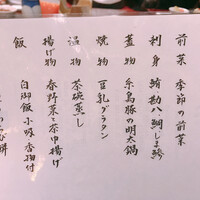 前菜 季節の前菜
刺身 鮪 勘八 鯛 しま鯵
蓋物 糸島豚の明太鍋
焼物 豆乳グラタン
温物 茶碗蒸し
揚げ物 春野菜と茶巾揚げ
飯 白御飯 小吸 香物付